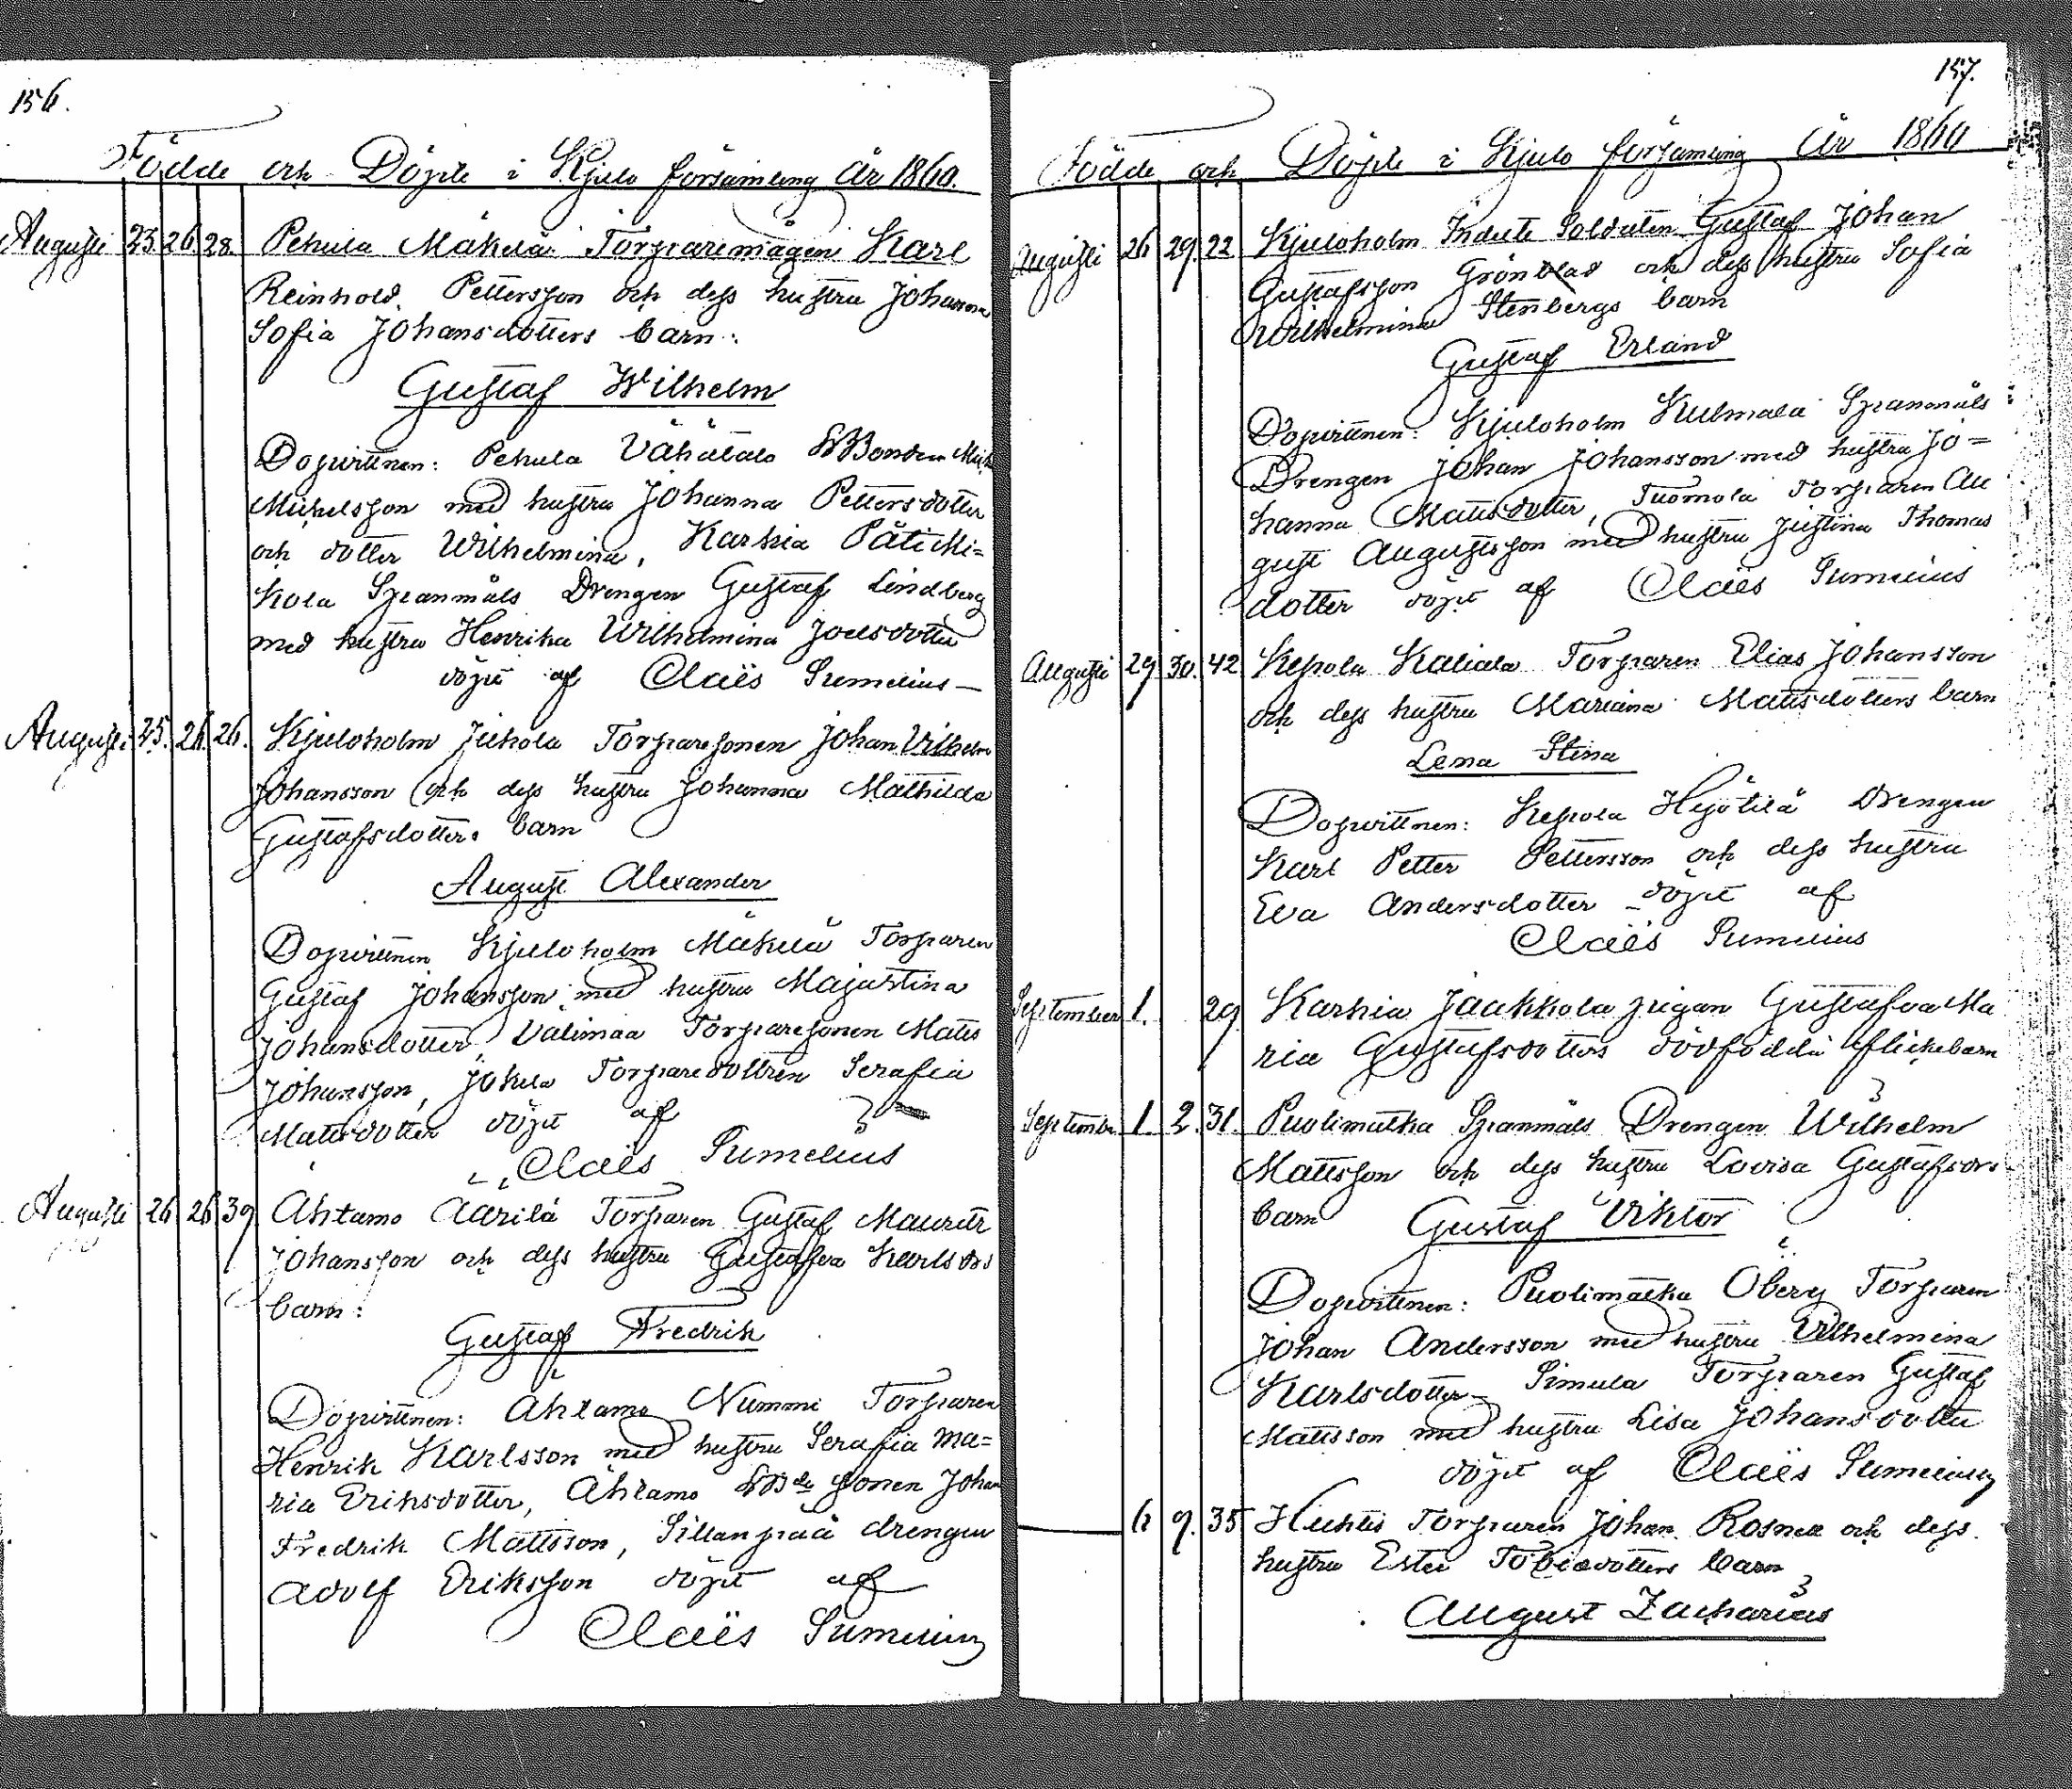 156.
Födde och Döpte i Kjulo församling År 1860.
Augusti 23. 26. 28. Pehula Mäkelä Torparemågen Karl
Reinhold Pettersson och dess hustru Johanna
Sofia Johansdotters barn:
Gustaf Wilhelm
Dopvittnen: Pehula Vähätalo Bonden Mich
Michelsson med hustru Johanna Pettersdotter
och dotter Wilhelmina, Karhia Päti Mi=
kola Spanmåls Drengen Gustaf Lindberg
med hustru Henrika Wilhelmina Joelsdotter
döpt af Claës Sumelius
Augusti 25. 26. 26. Kjuloholm Juhola Torparesonen Johan Vilhelm
Johansson och dess hustru Johanna Mathilda
Gustafsdotters barn
August Alexander
Dopvittnen Kjuloholm Mäkelä Torparen
Gustaf Johansson med hustru Majastina
Johansdotter, Välimaa Torparesonen Matts
Johansson, Jokela Torparedottren Serafia
Mattsdotter döpt af
Claës Sumelius
Augusti 26 26 39 Ahtamo Aarilä Torparen Gustaf Mauritz
Johansson och dess hustru Gustafva Karlsdrs
barn:
Gustaf Fredrik
Dopvittnen: Ahtamo Nummi Torparen
Henrik Karlsson med hustru Serafia Ma=
ria Eriksdotter, Ahtamo sonen Johan
Fredrik Mattsson, Sillanpää drengen
Adolf Eriksson döpt af
Claës Sumelius
157.
Födde och Döpte i Kjulo församling År 1860
Augusti 26 29. 22 Kjuloholm Indelte Soldaten Gustaf Johan
Gustafsson Grönblad och dess hustru Sofia
Wilhelmina Stenbergs barn
Gustaf Erland
Dopvittnen: Kjuloholm Kulmala Spanmåls
Drengen Johan Johansson med hustru Jo=
hanna Mattsdotter, Tuomola Torparen Au
gust Augustsson med hustru Justina Thomas
dotter döpt af Claës Sumelius
Augusti 29 30. 42 Kepola Kaliala Torparen Elias Johansson
och dess hustru Mariana Mattsdotters barn
Lena Stina
Dopvittnen: Kepola Hejötilä Drengen
Karl Petter Pettersson och dess hustru
Eva Andersdotter döpt af
Claës Sumelius
September 1. 29 Karhia Jaakkola pigan Gustafva Ma
ria Gustafsdotters dödfödda flickebarn
September 1. 2. 31. Puolimatka Spanmåls Drengen Wilhelm
Mattsson och dess hustru Lovisa Gustafsdrs
barn Gustaf Viktor
Dopvittnen: Puolimatka Öberg Torparen
Johan Andersson med hustru Vilhelmina
Karlsdotter Simula Torparen Gustaf
Mattsson med hustru Lisa Johansdotter
döpt af Claës Sumelius
6 9. 35 Huhtis Torparen Johan Rosnell och dess
hustru Ester Tobiasdotters barn
August Zacharias